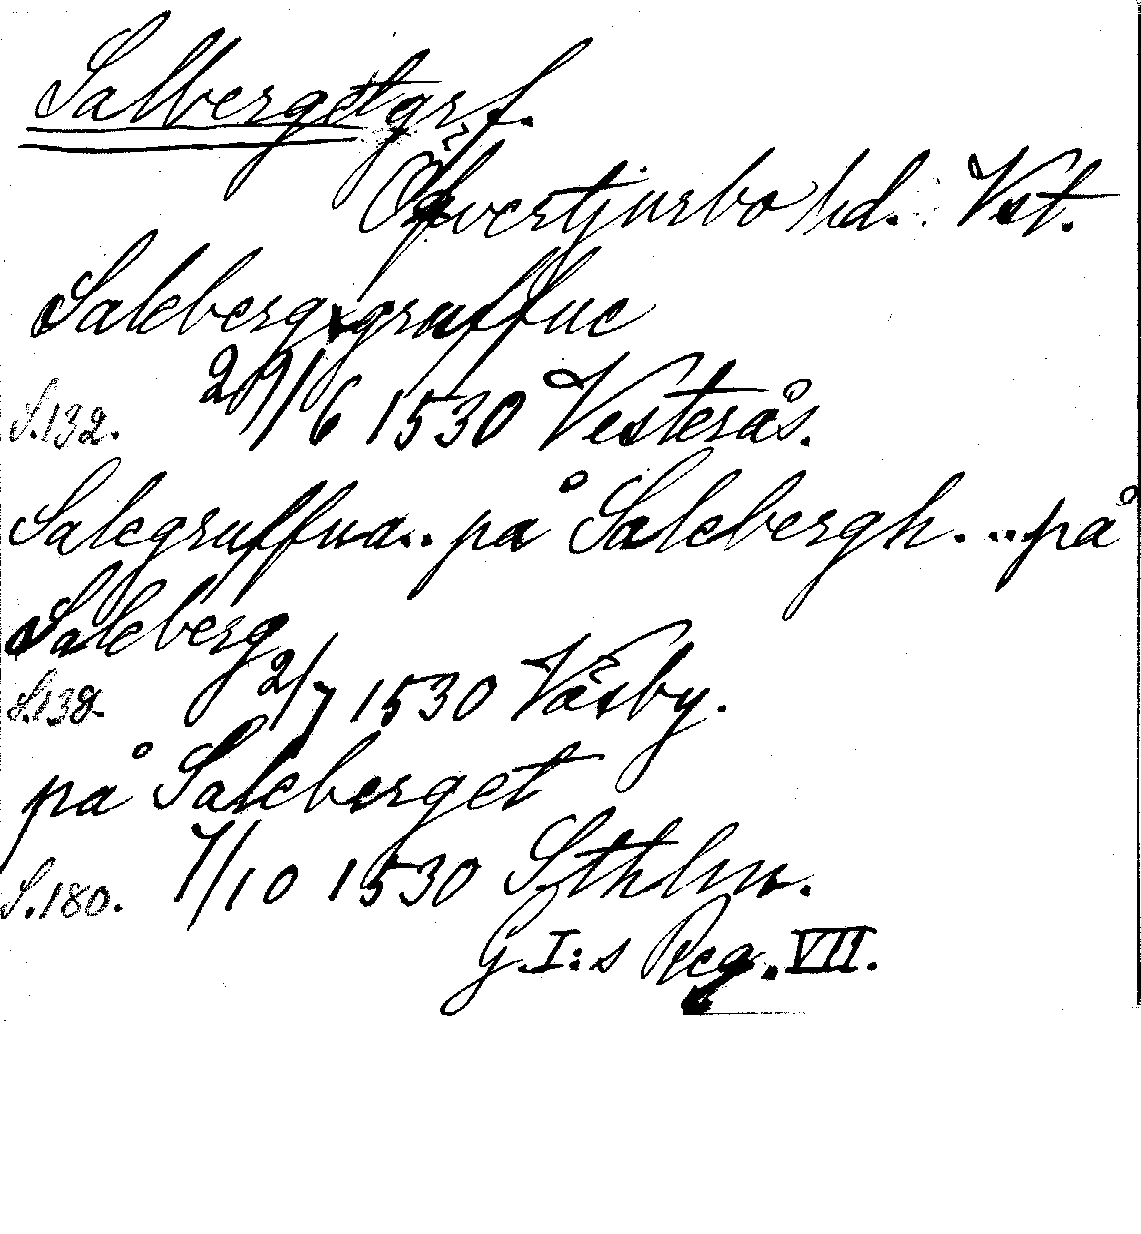 Salberget grf.
Öfvertjurbo hd. Vst.
Salebergxgruffue
29/6 1530 Vesterås.
S.132.
Salegruffua.. på Salebergh. ... på
Saleberg
S.138. 2/7 1530 Väsby.
på Saleberget
S.180. 7/10 1530 Sthlm.
G.I:s Reg. VII.